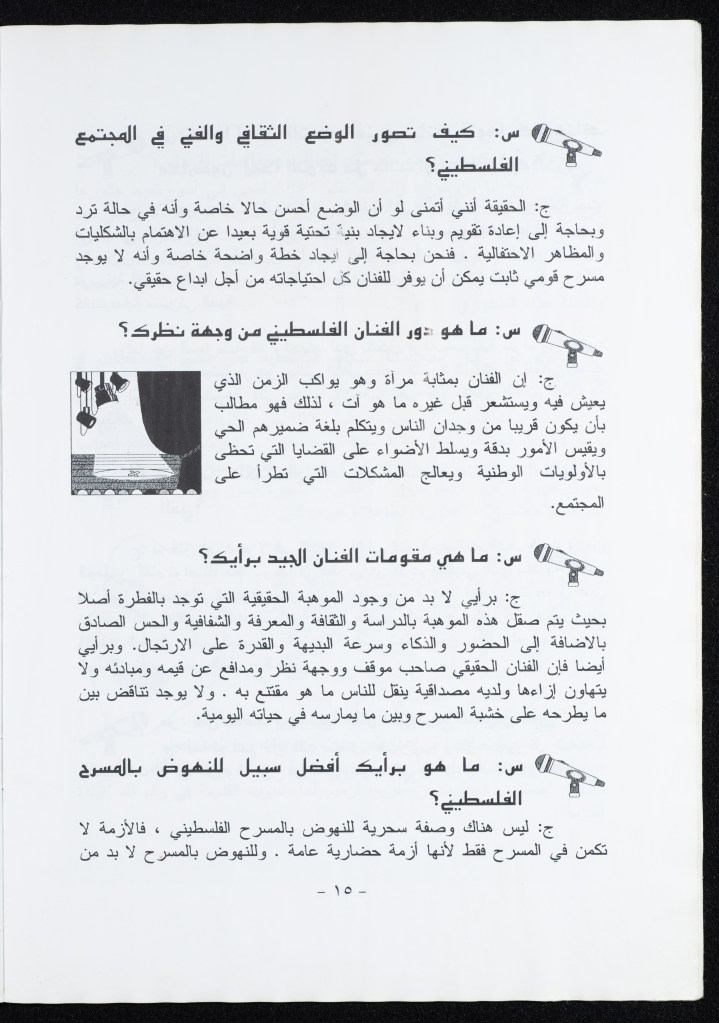 س: كيف تصور الوضع الثقافي والفني في المجتمع
الفلسطيني؟
ج: الحقيقة أنني أتمنى لو أن الوضع أحسن حالا خاصة وأنه في حالة ترد
وبحاجة إلى إعادة تقويم وبناء لايجاد بنية تحتية قوية بعيدا عن الاهتمام بالشكليات
والمظاهر الاحتفالية . فنحن بحاجة إلى ايجاد خطة واضحة خاصة وأنه لا يوجد
مسرح قومي ثابت يمكن أن يوفر للفنان كل احتياجاته من أجل ابداع حقيقي.
س: ما هو دور الفنان الفلسطيني من وجهة نظرك؟
ج: إن الفنان بمثابة مرآة وهو يواكب الزمن الذي
يعيش فيه ويستشعر قبل غيره ما هو آت ، لذلك فهو مطالب
بأن يكون قريبا من وجدان الناس ويتكلم بلغة ضميرهم الحي
ويقيس الأمور بدقة ويسلط الأضواء على القضايا التي تحظى
بالأولويات الوطنية ويعالج المشكلات التي تطرأ على
المجتمع.
س: ما هي مقومات الفنان الجيد برأيك؟
ج: برأيي لا بد من وجود الموهبة الحقيقية التي توجد بالفطرة أصلا
بحيث يتم صقل هذه الموهبة بالدراسة والثقافة والمعرفة والشفافية والحس الصادق
بالاضافة إلى الحضور والذكاء وسرعة البديهة والقدرة على الارتجال. وبرأيي
أيضا فإن الفنان الحقيقي صاحب موقف ووجهة نظر ومدافع عن قيمه ومبادئه ولا
يتهاون إزاءها ولديه مصداقية ينقل للناس ما هو مقتنع به . ولا يوجد تناقض بين
ما يطرحه على خشبة المسرح وبين ما يمارسه في حياته اليومية.
س: ما هو برأيك أفضل سبيل للنهوض بالمسرح
الفلسطيني؟
ج: ليس هناك وصفة سحرية للنهوض بالمسرح الفلسطيني ، فالأزمة لا
تكمن في المسرح فقط لأنها أزمة حضارية عامة . وللنهوض بالمسرح لا بد من
- ١٥ -